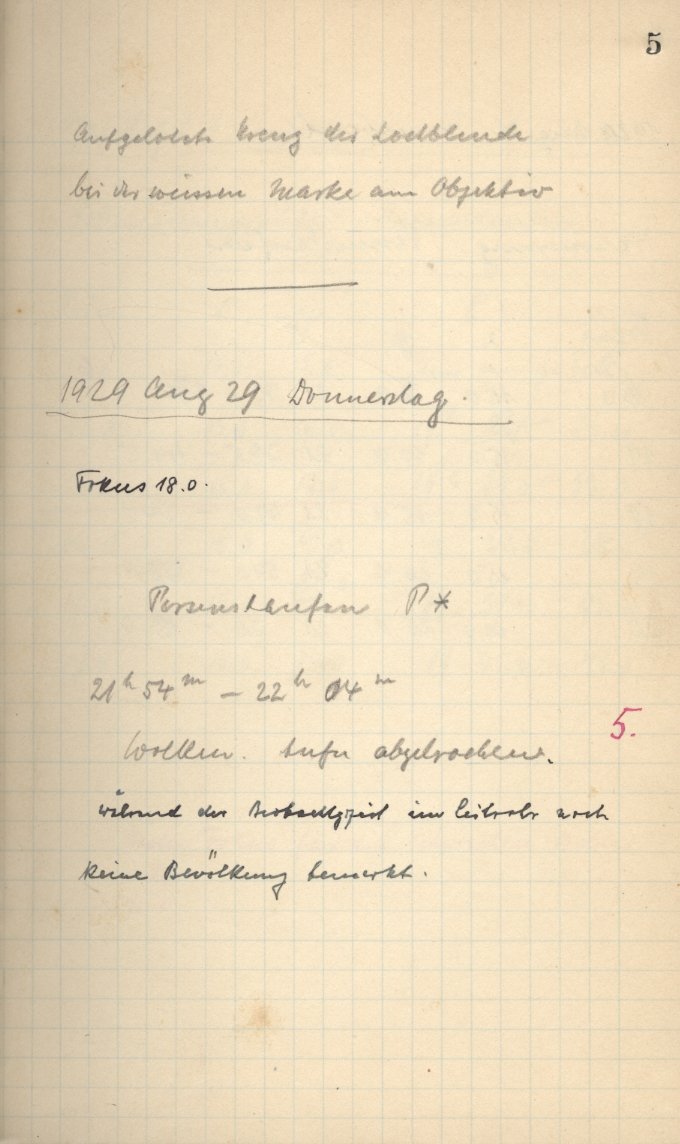 5
Aufgelötete Kreuz der Lochblende
bei der weissen Marke am Objektiv
1929 Aug 29 Donnerstag.
Fokus 18.0.
Perseushaufen P*
21h 54m – 22h 04m
5.
Wolken. Aufn abgebrochen.
während der Beobachtgszeit im Leitrohr noch
keine Bevölkung bemerkt.